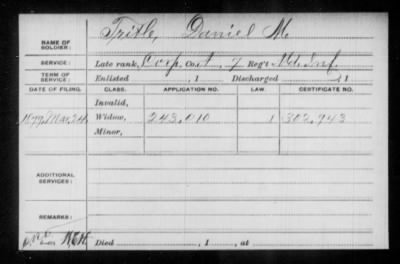 NAME OF SOLDIER: Tritle, Daniel M.
SERVICE: Late rank, Corp Co. 7 Reg't Md. Inf.
TERM OF SERVICE: Enlisted , 1 Discharged , 1
DATE OF FILING. CLASS. APPLICATION NO. LAW. CERTIFICATE NO.
Invalid,
1879, Mar. 24, Widow, 243,010 1 302,943
Minor,
ADDITIONAL SERVICES:
REMARKS:
Died , 1 , at